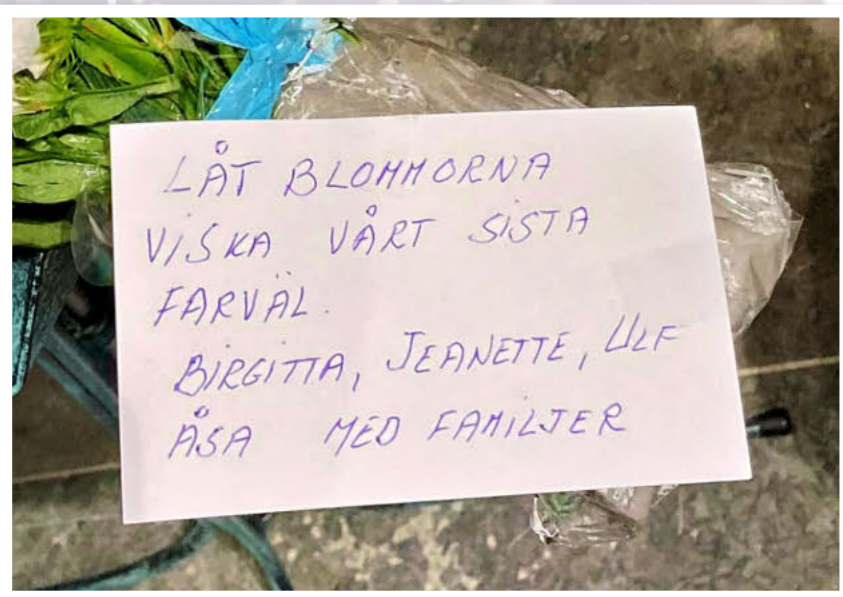 LÅT BLOMMORNA
VISKA VÅRT SISTA
FARVÄL.
BIRGITTA, JEANETTE, ULF
ÅSA MED FAMILJER